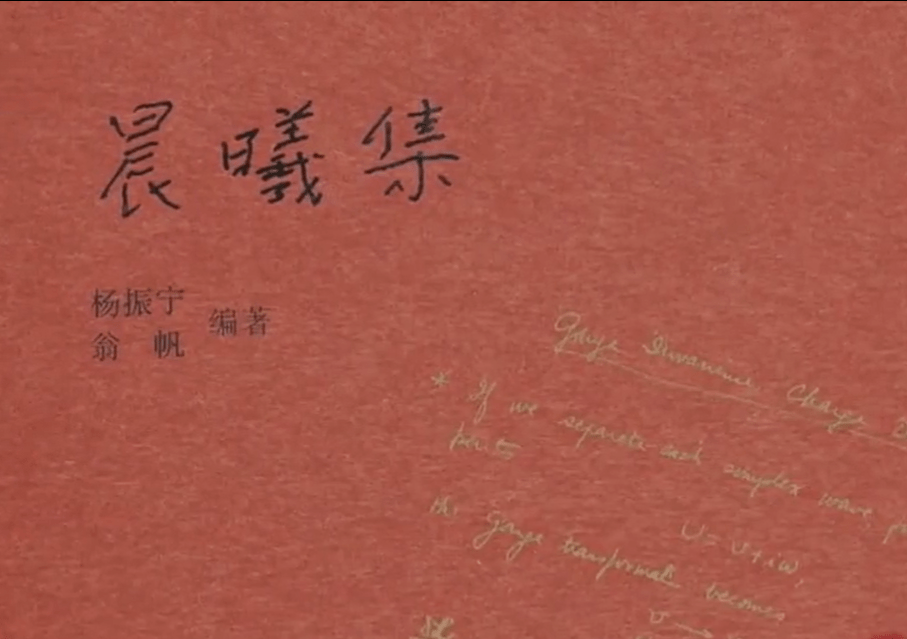 晨曦集
杨振宁
翁帆
编著
Gauge Invariance Charge
* If we separate each complex wave,
parts
the Gauge transformat becomes
U = v + iω,